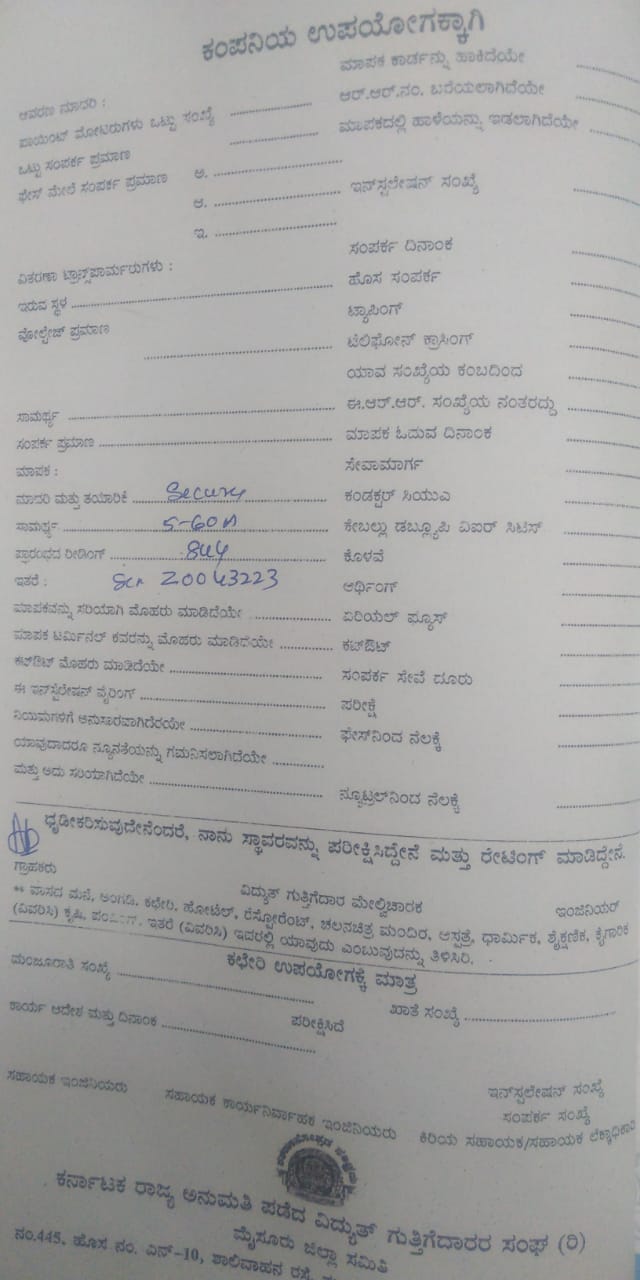 ಕಂಪನಿಯ ಉಪಯೋಗಕ್ಕಾಗಿ
ಆವರಣ ಮಾದರಿ :
ಪಾಯಿಂಟ್ ಮೋಟರುಗಳು ಒಟ್ಟು ಸಂಖ್ಯೆ ....................
ಒಟ್ಟು ಸಂಪರ್ಕ ಪ್ರಮಾಣ ....................
ಫೇಸ್ ಮೇಲೆ ಸಂಪರ್ಕ ಪ್ರಮಾಣ ಅ. ....................
ಆ. ....................
ಇ. ....................
ವಿತರಣಾ ಟ್ರಾನ್ಸ್‌ಪಾರ್ಮರುಗಳು :
ಇರುವ ಸ್ಥಳ ....................
ವೋಲ್ಟೇಜ್ ಪ್ರಮಾಣ
....................
ಸಾಮರ್ಥ್ಯ ....................
ಸಂಪರ್ಕ ಪ್ರಮಾಣ ....................
ಮಾಪಕ :
ಮಾದರಿ ಮತ್ತು ತಯಾರಿಕೆ .......... Secure ..........
ಸಾಮರ್ಥ್ಯ .......... 5-60A ..........
ಪ್ರಾರಂಭದ ರೀಡಿಂಗ್ .......... 844 ..........
ಇತರೆ : Z0043223
ಮಾಪಕವನ್ನು ಸರಿಯಾಗಿ ಮೊಹರು ಮಾಡಿದೆಯೇ ....................
ಮಾಪಕ ಟರ್ಮಿನಲ್ ಕವರನ್ನು ಮೊಹರು ಮಾಡಿದೆಯೇ ....................
ಕಟ್‌ಔಟ್ ಮೊಹರು ಮಾಡಿದೆಯೇ ....................
ಈ ಇನ್‌ಸ್ಟಲೇಷನ್ ವೈರಿಂಗ್ ....................
ನಿಯಮಗಳಿಗೆ ಅನುಸಾರವಾಗಿದೆರಯೇ ....................
ಯಾವುದಾದರೂ ನ್ಯೂನತೆಯನ್ನು ಗಮನಿಸಲಾಗಿದೆಯೇ ....................
ಮತ್ತು ಅದು ಸರಿಯಾಗಿದೆಯೇ ....................
ಮಾಪಕ ಕಾರ್ಡನ್ನು ಹಾಕಿದೆಯೇ ....................
ಆರ್.ಆರ್.ನಂ. ಬರೆಯಲಾಗಿದೆಯೇ ....................
ಮಾಪಕದಲ್ಲಿ ಹಾಳೆಯನ್ನು ಇಡಲಾಗಿದೆಯೇ ....................
ಇನ್‌ಸ್ಟಲೇಷನ್ ಸಂಖ್ಯೆ ....................
ಸಂಪರ್ಕ ದಿನಾಂಕ ....................
ಹೊಸ ಸಂಪರ್ಕ ....................
ಟ್ಯಾಪಿಂಗ್ ....................
ಟೆಲಿಫೋನ್ ಕ್ರಾಸಿಂಗ್ ....................
ಯಾವ ಸಂಖ್ಯೆಯ ಕಂಬದಿಂದ ....................
ಈ.ಆರ್.ಆರ್. ಸಂಖ್ಯೆಯ ನಂತರದ್ದು ....................
ಮಾಪಕ ಓದುವ ದಿನಾಂಕ ....................
ಸೇವಾಮಾರ್ಗ ....................
ಕಂಡಕ್ಟರ್ ಸಿಯುಎ ....................
ಕೇಬಲ್ಲು ಡಬ್ಲ್ಯೂಪಿ ವಿಐಆರ್ ಸಿಟಿಸ್ ....................
ಕೊಳವೆ ....................
ಅರ್ಥಿಂಗ್ ....................
ಏರಿಯಲ್ ಫ್ಯೂಸ್ ....................
ಕಟ್‌ಔಟ್ ....................
ಸಂಪರ್ಕ ಸೇವೆ ದೂರು ....................
ಪರೀಕ್ಷೆ ....................
ಫೇಸ್‌ನಿಂದ ನೆಲಕ್ಕೆ ....................
ನ್ಯೂಟ್ರಲ್‌ನಿಂದ ನೆಲಕ್ಕೆ ....................
ಧೃಡೀಕರಿಸುವುದೇನೆಂದರೆ, ನಾನು ಸ್ಥಾವರವನ್ನು ಪರೀಕ್ಷಿಸಿದ್ದೇನೆ ಮತ್ತು ರೇಟಿಂಗ್ ಮಾಡಿದ್ದೇನೆ.
ಗ್ರಾಹಕರು ವಿದ್ಯುತ್ ಗುತ್ತಿಗೆದಾರ ಮೇಲ್ವಿಚಾರಕ ಇಂಜಿನಿಯರ್
** ವಾಸದ ಮನೆ, ಅಂಗಡಿ, ಕಛೇರಿ, ಹೋಟೆಲ್, ರೆಸ್ಟೋರೆಂಟ್, ಚಲನಚಿತ್ರ ಮಂದಿರ, ಆಸ್ಪತ್ರೆ, ಧಾರ್ಮಿಕ, ಶೈಕ್ಷಣಿಕ, ಕೈಗಾರಿಕ
(ವಿವರಿಸಿ) ಕೃಷಿ, ಪಂಪಿಂಗ್, ಇತರೆ (ವಿವರಿಸಿ) ಇದರಲ್ಲಿ ಯಾವುದು ಎಂಬುವುದನ್ನು ತಿಳಿಸಿರಿ.
ಕಛೇರಿ ಉಪಯೋಗಕ್ಕೆ ಮಾತ್ರ
ಮಂಜೂರಾತಿ ಸಂಖ್ಯೆ .................... ಖಾತೆ ಸಂಖ್ಯೆ ....................
ಕಾರ್ಯ ಆದೇಶ ಮತ್ತು ದಿನಾಂಕ .................... ಪರೀಕ್ಷಿಸಿದೆ
ಇನ್‌ಸ್ಟಲೇಷನ್ ಸಂಖ್ಯೆ
ಸಂಪರ್ಕ ಸಂಖ್ಯೆ
ಸಹಾಯಕ ಇಂಜಿನಿಯರು ಸಹಾಯಕ ಕಾರ್ಯನಿರ್ವಾಹಕ ಇಂಜಿನಿಯರು ಕಿರಿಯ ಸಹಾಯಕ/ಸಹಾಯಕ ಲೆಕ್ಕಾಧಿಕಾರಿ
ಕರ್ನಾಟಕ ರಾಜ್ಯ ಅನುಮತಿ ಪಡೆದ ವಿದ್ಯುತ್ ಗುತ್ತಿಗೆದಾರರ ಸಂಘ (ರಿ)
ಮೈಸೂರು ಜಿಲ್ಲಾ ಸಮಿತಿ
ನಂ.445, ಹೊಸ ನಂ. ಎನ್-10, ಶಾಲಿವಾಹನ ರಸ್ತೆ,